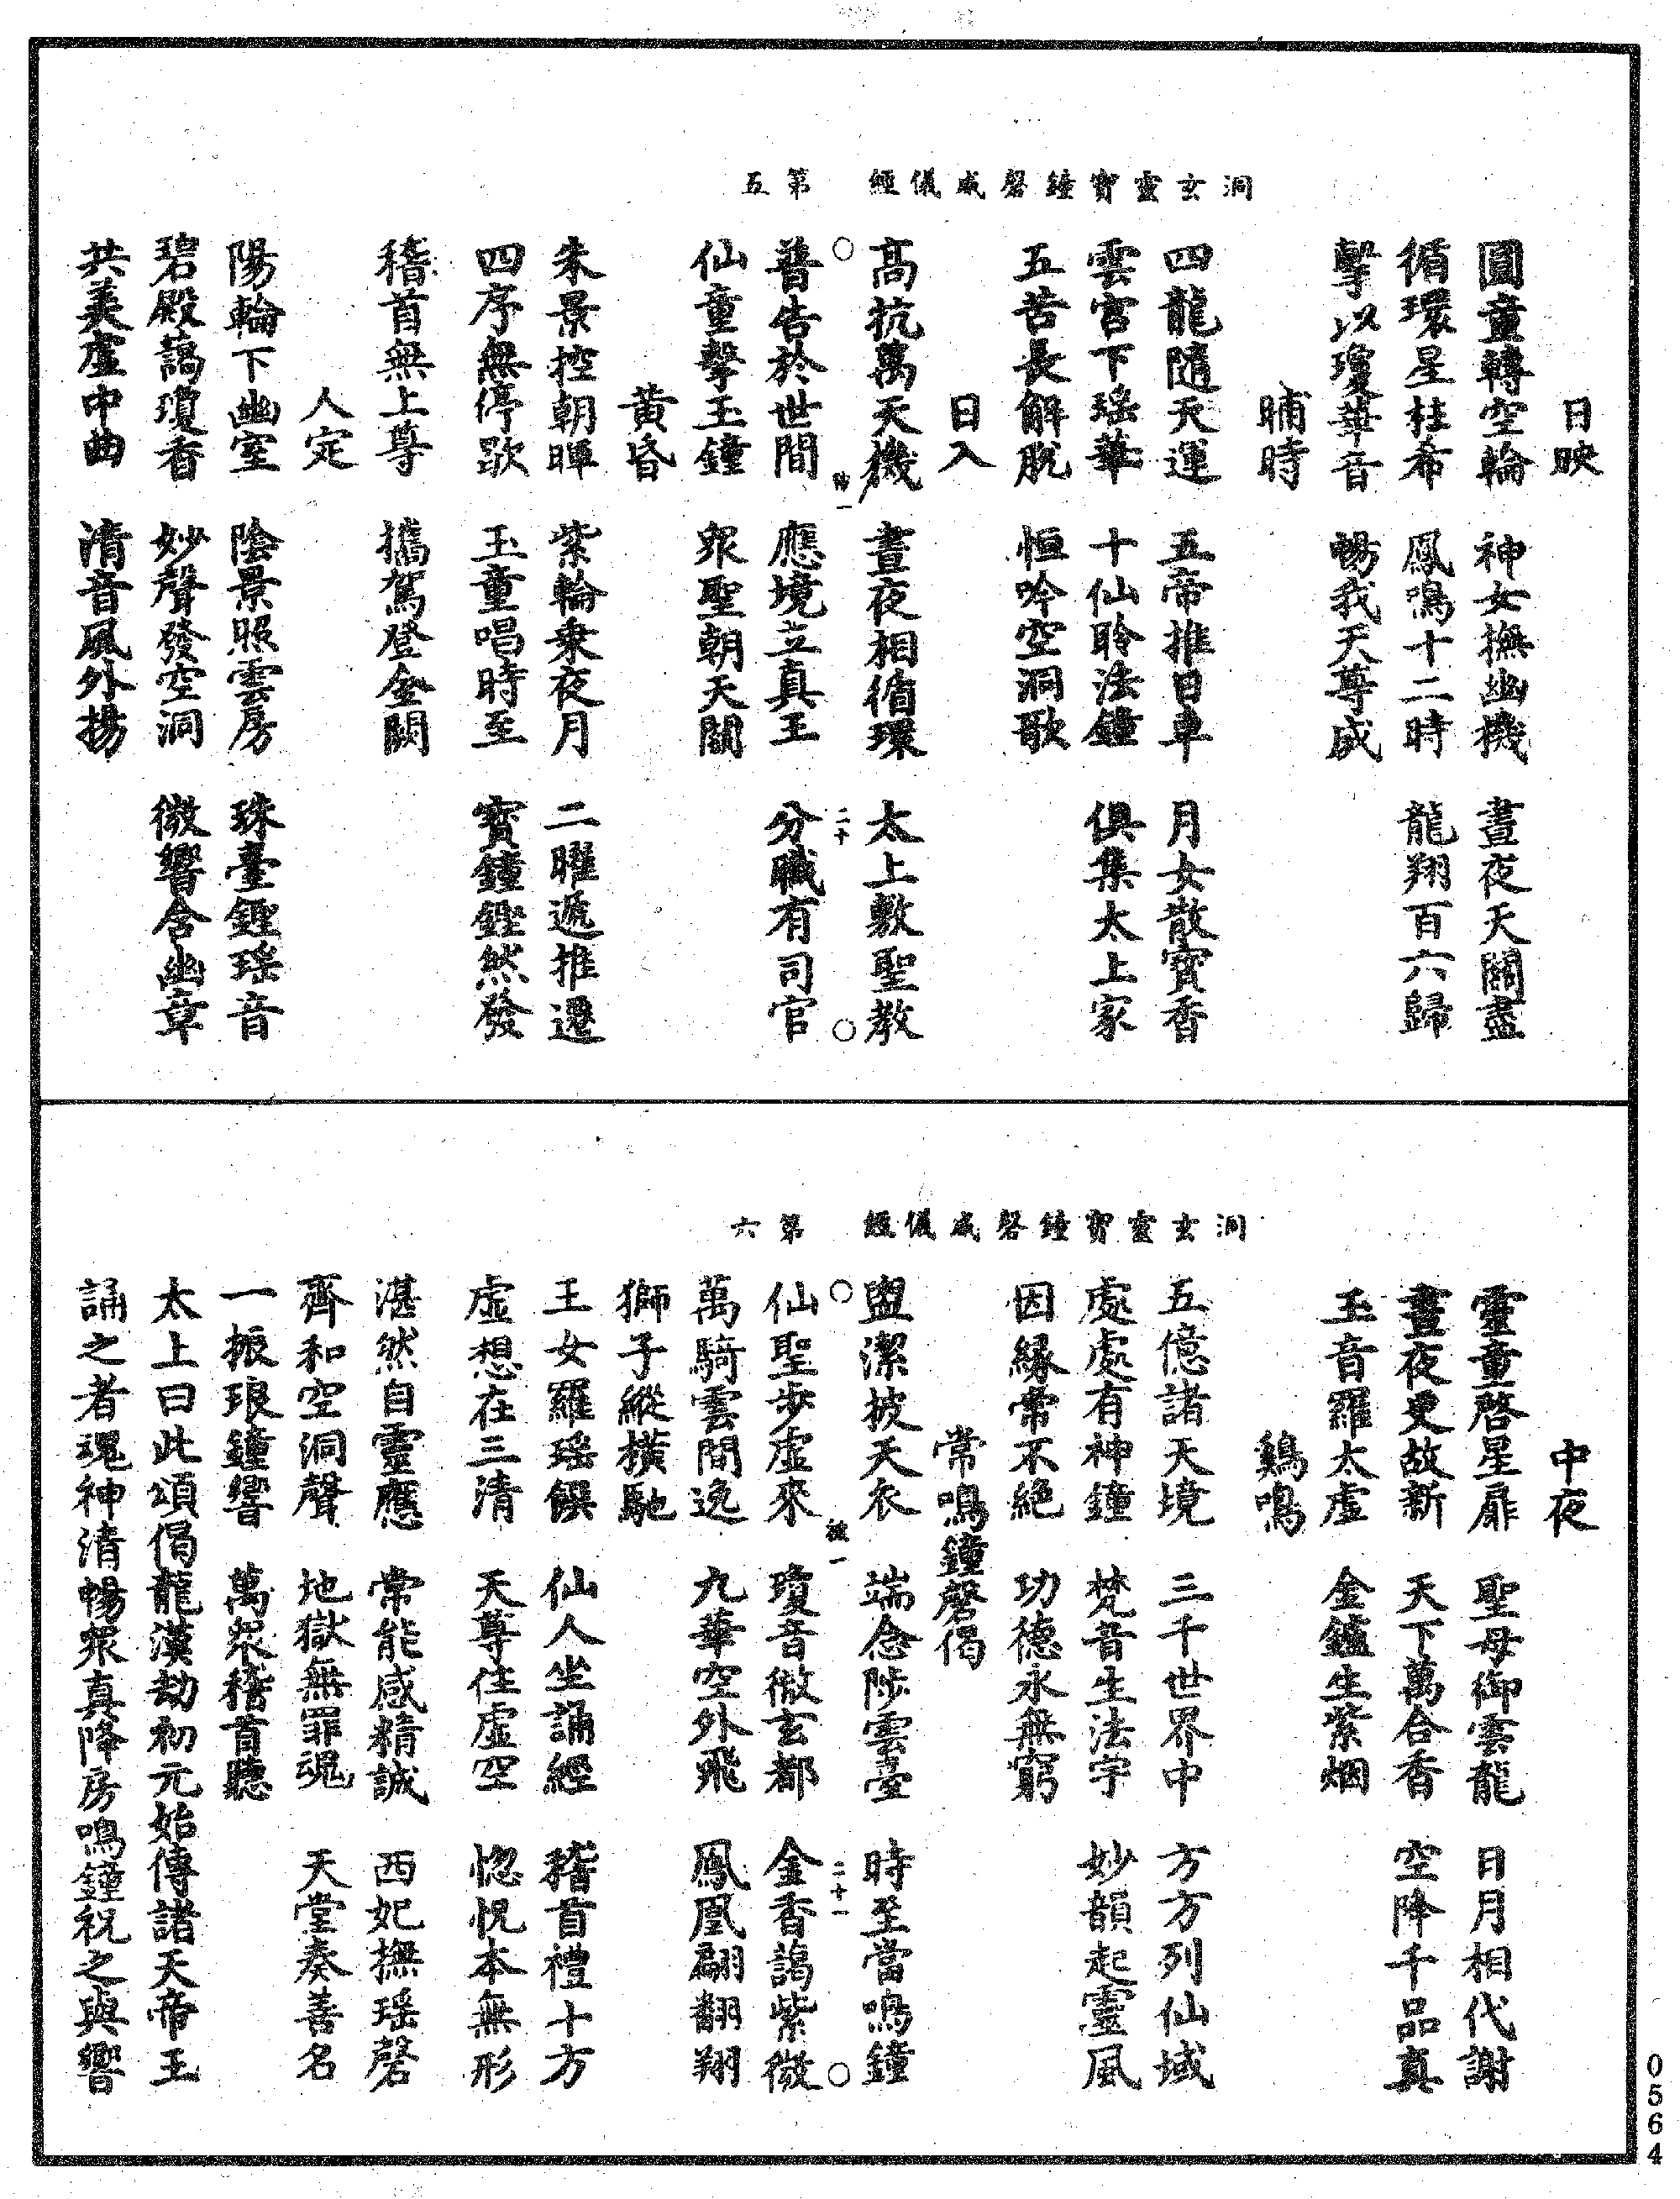 洞玄靈寶鐘磬威儀經 第五
日映
圓童轉空輪 神女撫幽機 晝夜天關盡
循環星柱希 鳳鳴十二時 龍翔百六歸
擊以瓊華音 暢我天尊威
晡時
四龍隨天運 五帝推日車 月女散寶香
雲宮下瑶華 十仙聆法鐘 俱集太上家
五苦長解脫 恒吟空洞歌
日入
高抗萬天機 晝夜相循環 太上敷聖教
普告於世間 應境立真王 分職有司官
二十
仙童擊玉鐘 眾聖朝天關
黃昏
朱景控朝暉 紫輪乘夜月 二曜遞推遷
四序無停歇 玉童唱時至 寶鐘鏗然發
稽首無上尊 攜駕登金闕
人定
陽輪下幽室 陰景照雲房 珠臺鏗瑶音
碧殿藹瓊香 妙聲發空洞 微響含幽章
共美虛中曲 清音風外揚
洞玄靈寶鐘磬威儀經 第六
中夜
靈童啓星扉 聖母御雲龍 日月相代謝
晝夜更故新 天下萬合香 空降千品真
玉音羅太虛 金鑪生紫烟
鷄鳴
五億諸天境 三千世界中 方方列仙域
處處有神鐘 梵音生法宇 妙韻起靈風
因緣常不絕 功德永無窮
常鳴鐘磬偈
盥潔披天衣 端念陟雲臺 時至當鳴鐘
仙聖步虛來 瓊音徹玄都 金香藹紫微
二十一
萬騎雲間逸 九華空外飛 鳳凰翩翻翔
獅子縱橫馳
王女羅瑶饌 仙人坐誦經 稽首禮十方
虛想在三清 天尊住虛空 惚怳本無形
湛然自靈應 常能感精誠 西妃撫瑶磬
齊和空洞聲 地獄無罪魂 天堂奏善名
一振琅鐘響 萬眾稽首聽
太上曰此頌偈龍漢劫初元始傳諸天帝王
誦之者魂神清暢眾真降房鳴鐘祝之與響
0564